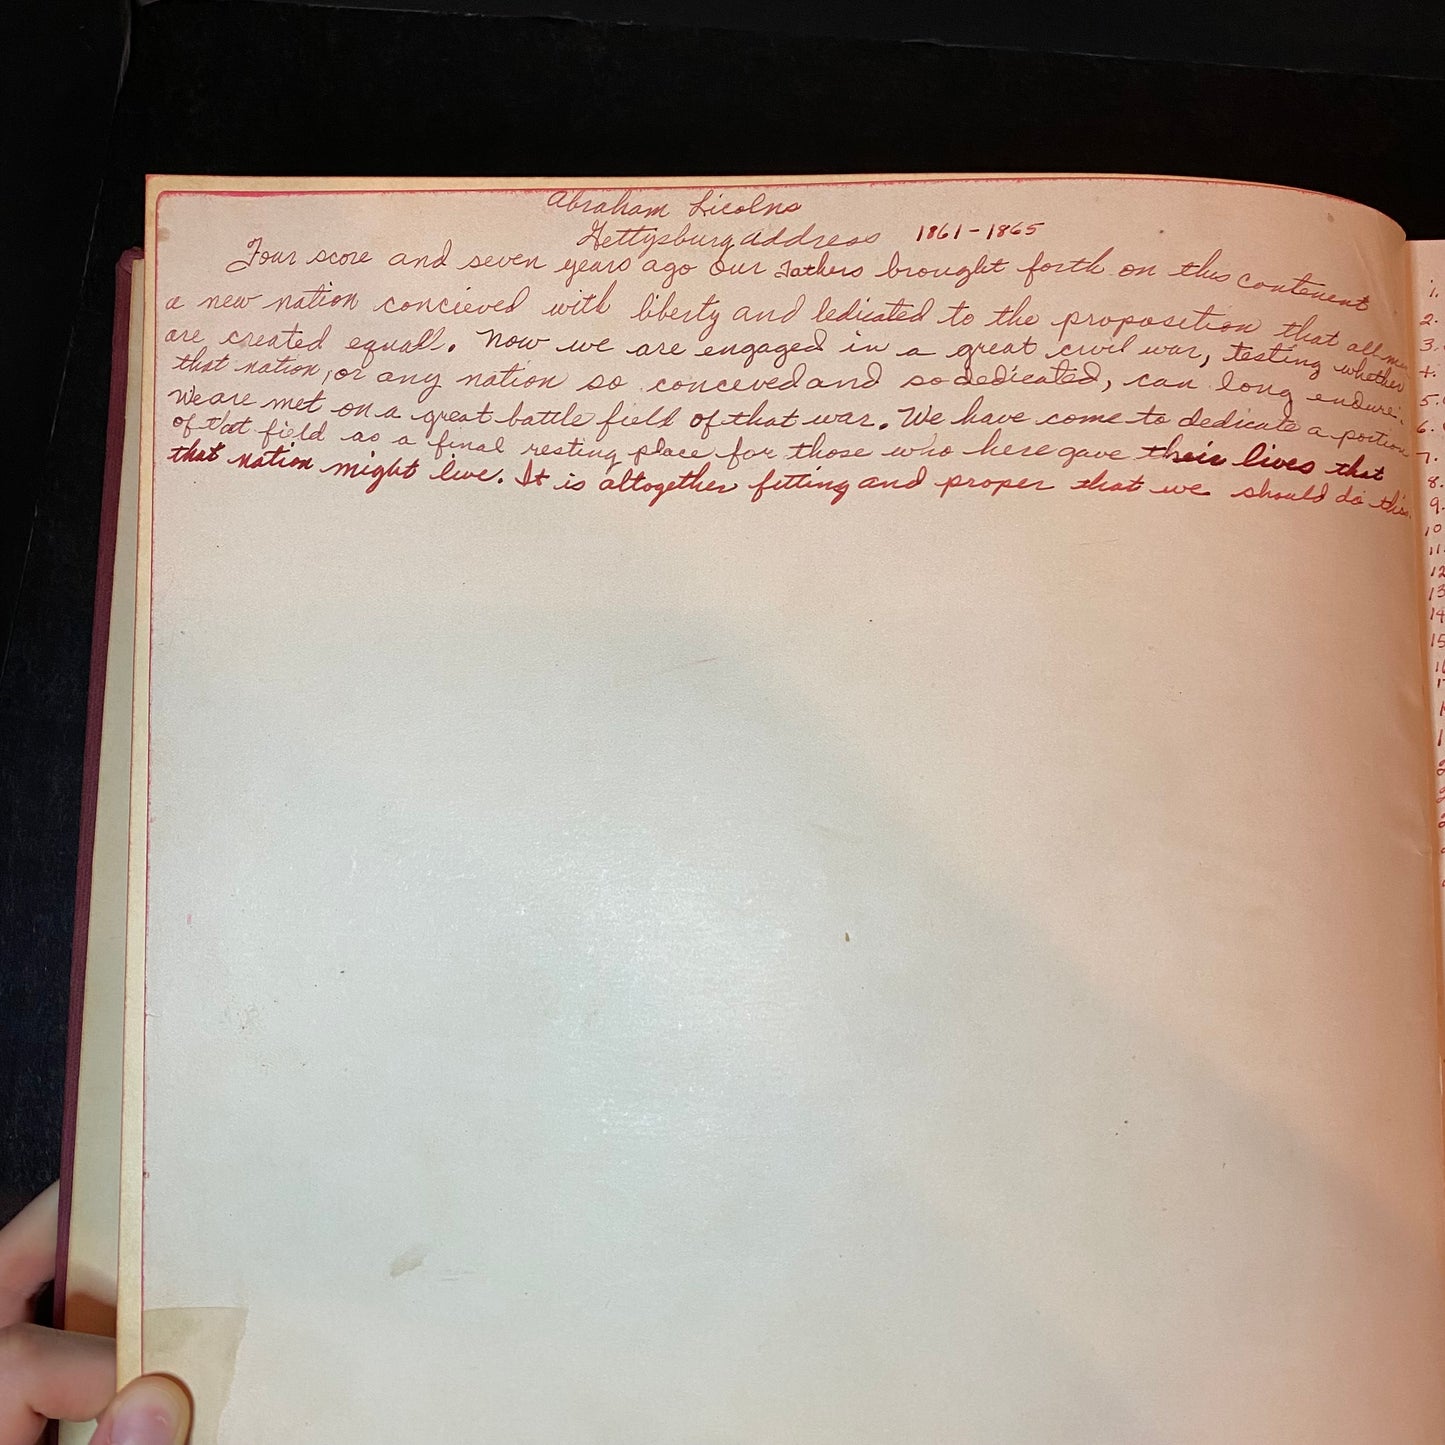 Abraham Licolns
Gettysburg address 1861-1865
Four score and seven years ago our Fathers brought forth on this contenent
a new nation concieved with liberty and ledicated to the proposition that all men
are created equall. Now we are engaged in a great civil war, testing whether
that nation, or any nation so conceved and so dedicated, can long endure.
We are met on a great battle field of that war. We have come to dedicate a portion
of that field as a final resting place for those who here gave their lives that
that nation might live. It is altogether fitting and proper that we should do this.
1.
2.
3.
4.
5.
6.
7.
8.
9.
10
11.
12
13
14
15
16
17